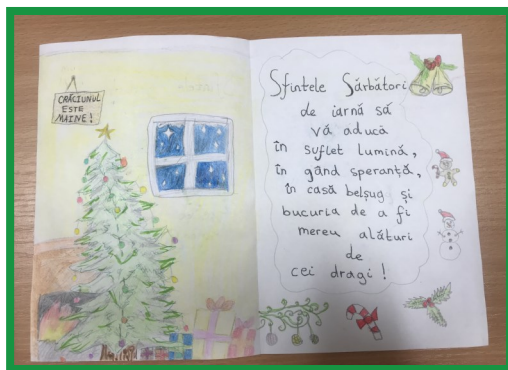 CRĂCIUNUL
ESTE
MAINE!
Sfintele Sărbători
de iarnă să
vă aducă
în suflet lumină,
în gând speranță,
în casă belșug și
bucuria de a fi
mereu alături
de
cei dragi!